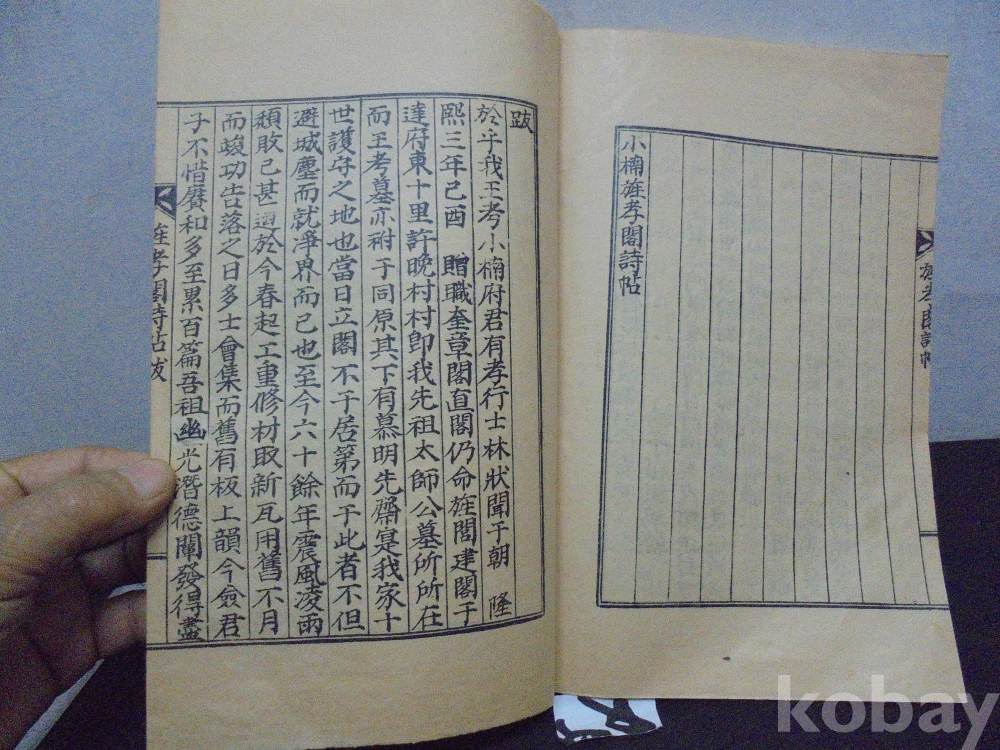 小楠旌孝閣詩帖
旌孝閣詩帖
跋
於乎我王考小楠府君有孝行士林狀聞于朝 隆
熙三年己酉 贈職奎章閣直閣仍命旌閭建閣于
達府東十里許晚村村即我先祖太師公墓所所在
而王考墓亦祔于同原其下有慕明先齋寔我家十
世護守之地也當日立閣不于居第而于此者不但
避城塵而就淨界而已也至今六十餘年震風凌雨
頹敗已甚迺於今春起工重修材取新瓦用舊不月
而竣功告落之日多士會集而舊有板上韻今僉君
子不惜賡和多至累百篇吾祖幽光潛德闡發得盡
旌孝閣詩帖跋
kobay